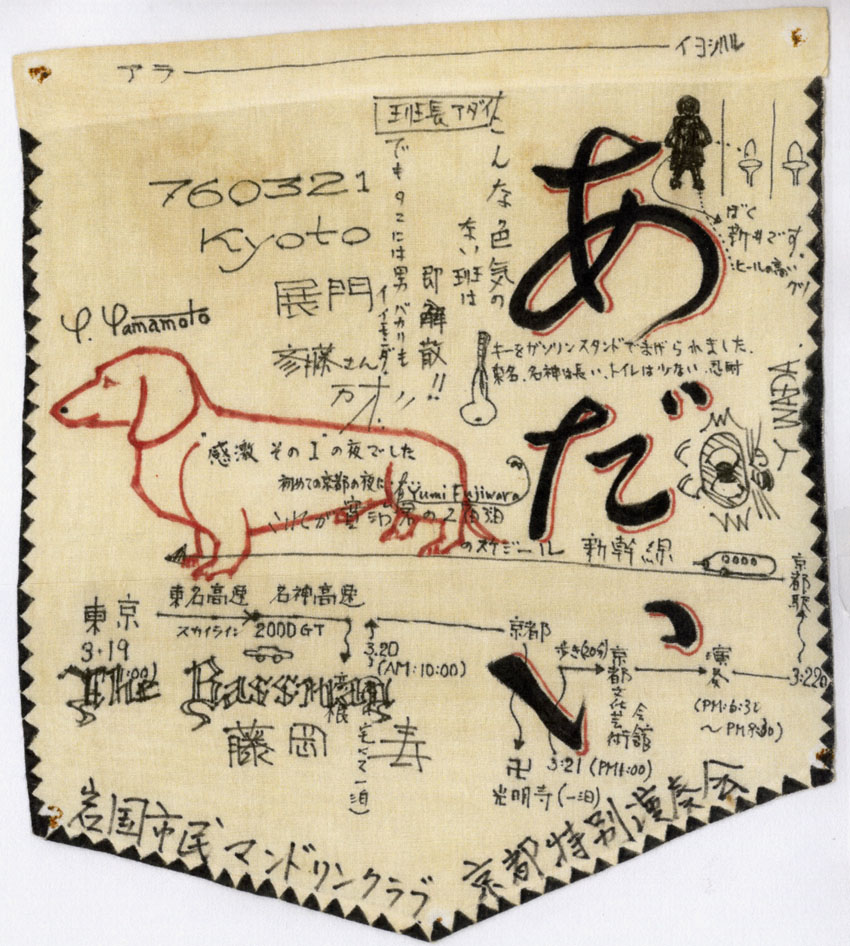 アラ
イヨシハル
班長アダイ
こんな色気の
ない班は
即解散!!
でもそこには男バカりも
イイモンダ。
760321
Kyoto
展門
斎藤さん
万才!!
Y. Yamamoto
あだい
ぼく
新井です。
ヒールの高い
クツ
キーをガソリンスタンドでまげられました。
東名、名神は長い、トイレは少ない、忍耐
"感激 その1"の夜でした
初めての京都の夜に
Yumi Fujiwara
のスケジール 新幹線
東京
3・19
東名高速 名神高速
スカイライン 2000GT
3.20
(AM:10:00)
京都
卍
光明寺(一泊)
3/21 (PM1:00)
歩き(20分)
京都文化芸術
会館
演奏
(PM:6:30
～PM9:30)
3:22
京都駅
藤岡 寿
岩国市民マンドリンクラブ 京都特別演奏会